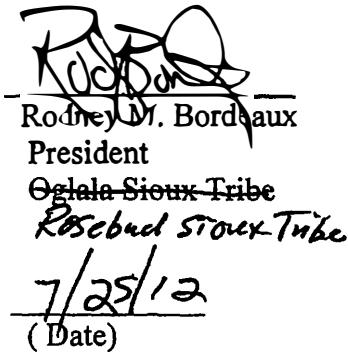 Rodney M. Bordeaux
President
Oglala Sioux Tribe
Rosebud Sioux Tribe
7/25/12
( Date)